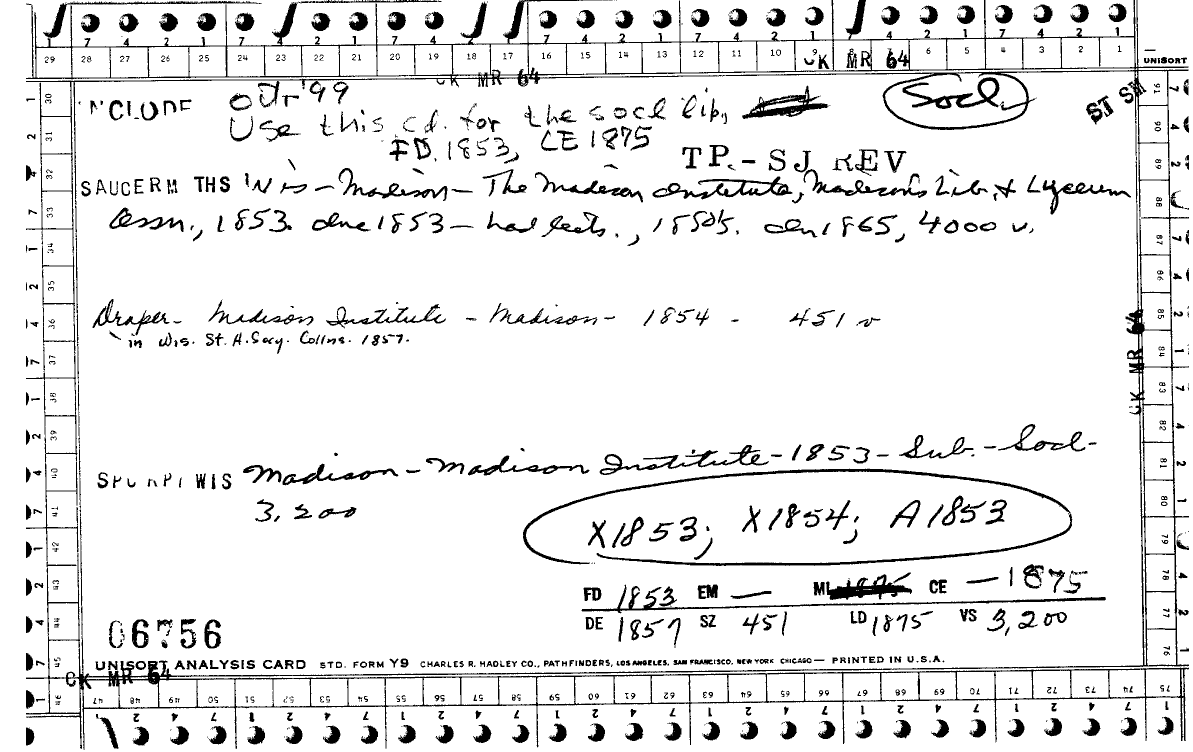 7 4 2 1 7 4 2 1 7 4 2 1 7 4 2 1 7 4 2 1
29 28 27 26 25 24 23 22 21 20 19 18 17 16 15 14 13 12 11 10 9 8 7 6 5 4 3 2 1
UNISORT
CK MR 64
CK MR 64
INCLUDE
Oct '99
Socl.
ST SM
Use this cd. for the socl lib,
FD. 1853, CE 1875
TP.-SJ REV
SAUCERM THS Wis-Madison- The Madison Institute, Madison's Lib. & Lyceum
Assn., 1853. inc 1853- had lects., 1850s. in 1865, 4000 v.
Draper- Madison Institute - Madison- 1854 - 451 v
in Wis. St. H. Socy. Collns. 1857.
CK MR 64
WIS Madison-Madison Institute-1853-Sub.-Socl-
3,200
X1853; X1854; A1853
FD 1853 EM — ML 1875 CE —1875
DE 1857 SZ 451 LD 1875 VS 3,200
06756
UNISORT ANALYSIS CARD STD. FORM Y9 CHARLES R. HADLEY CO., PATHFINDERS, LOS ANGELES, SAN FRANCISCO, NEW YORK CHICAGO— PRINTED IN U.S.A.
CK MR 64
47 48 49 50 51 52 53 54 55 56 57 58 59 60 61 62 63 64 65 66 67 68 69 70 71 72 73 74 75